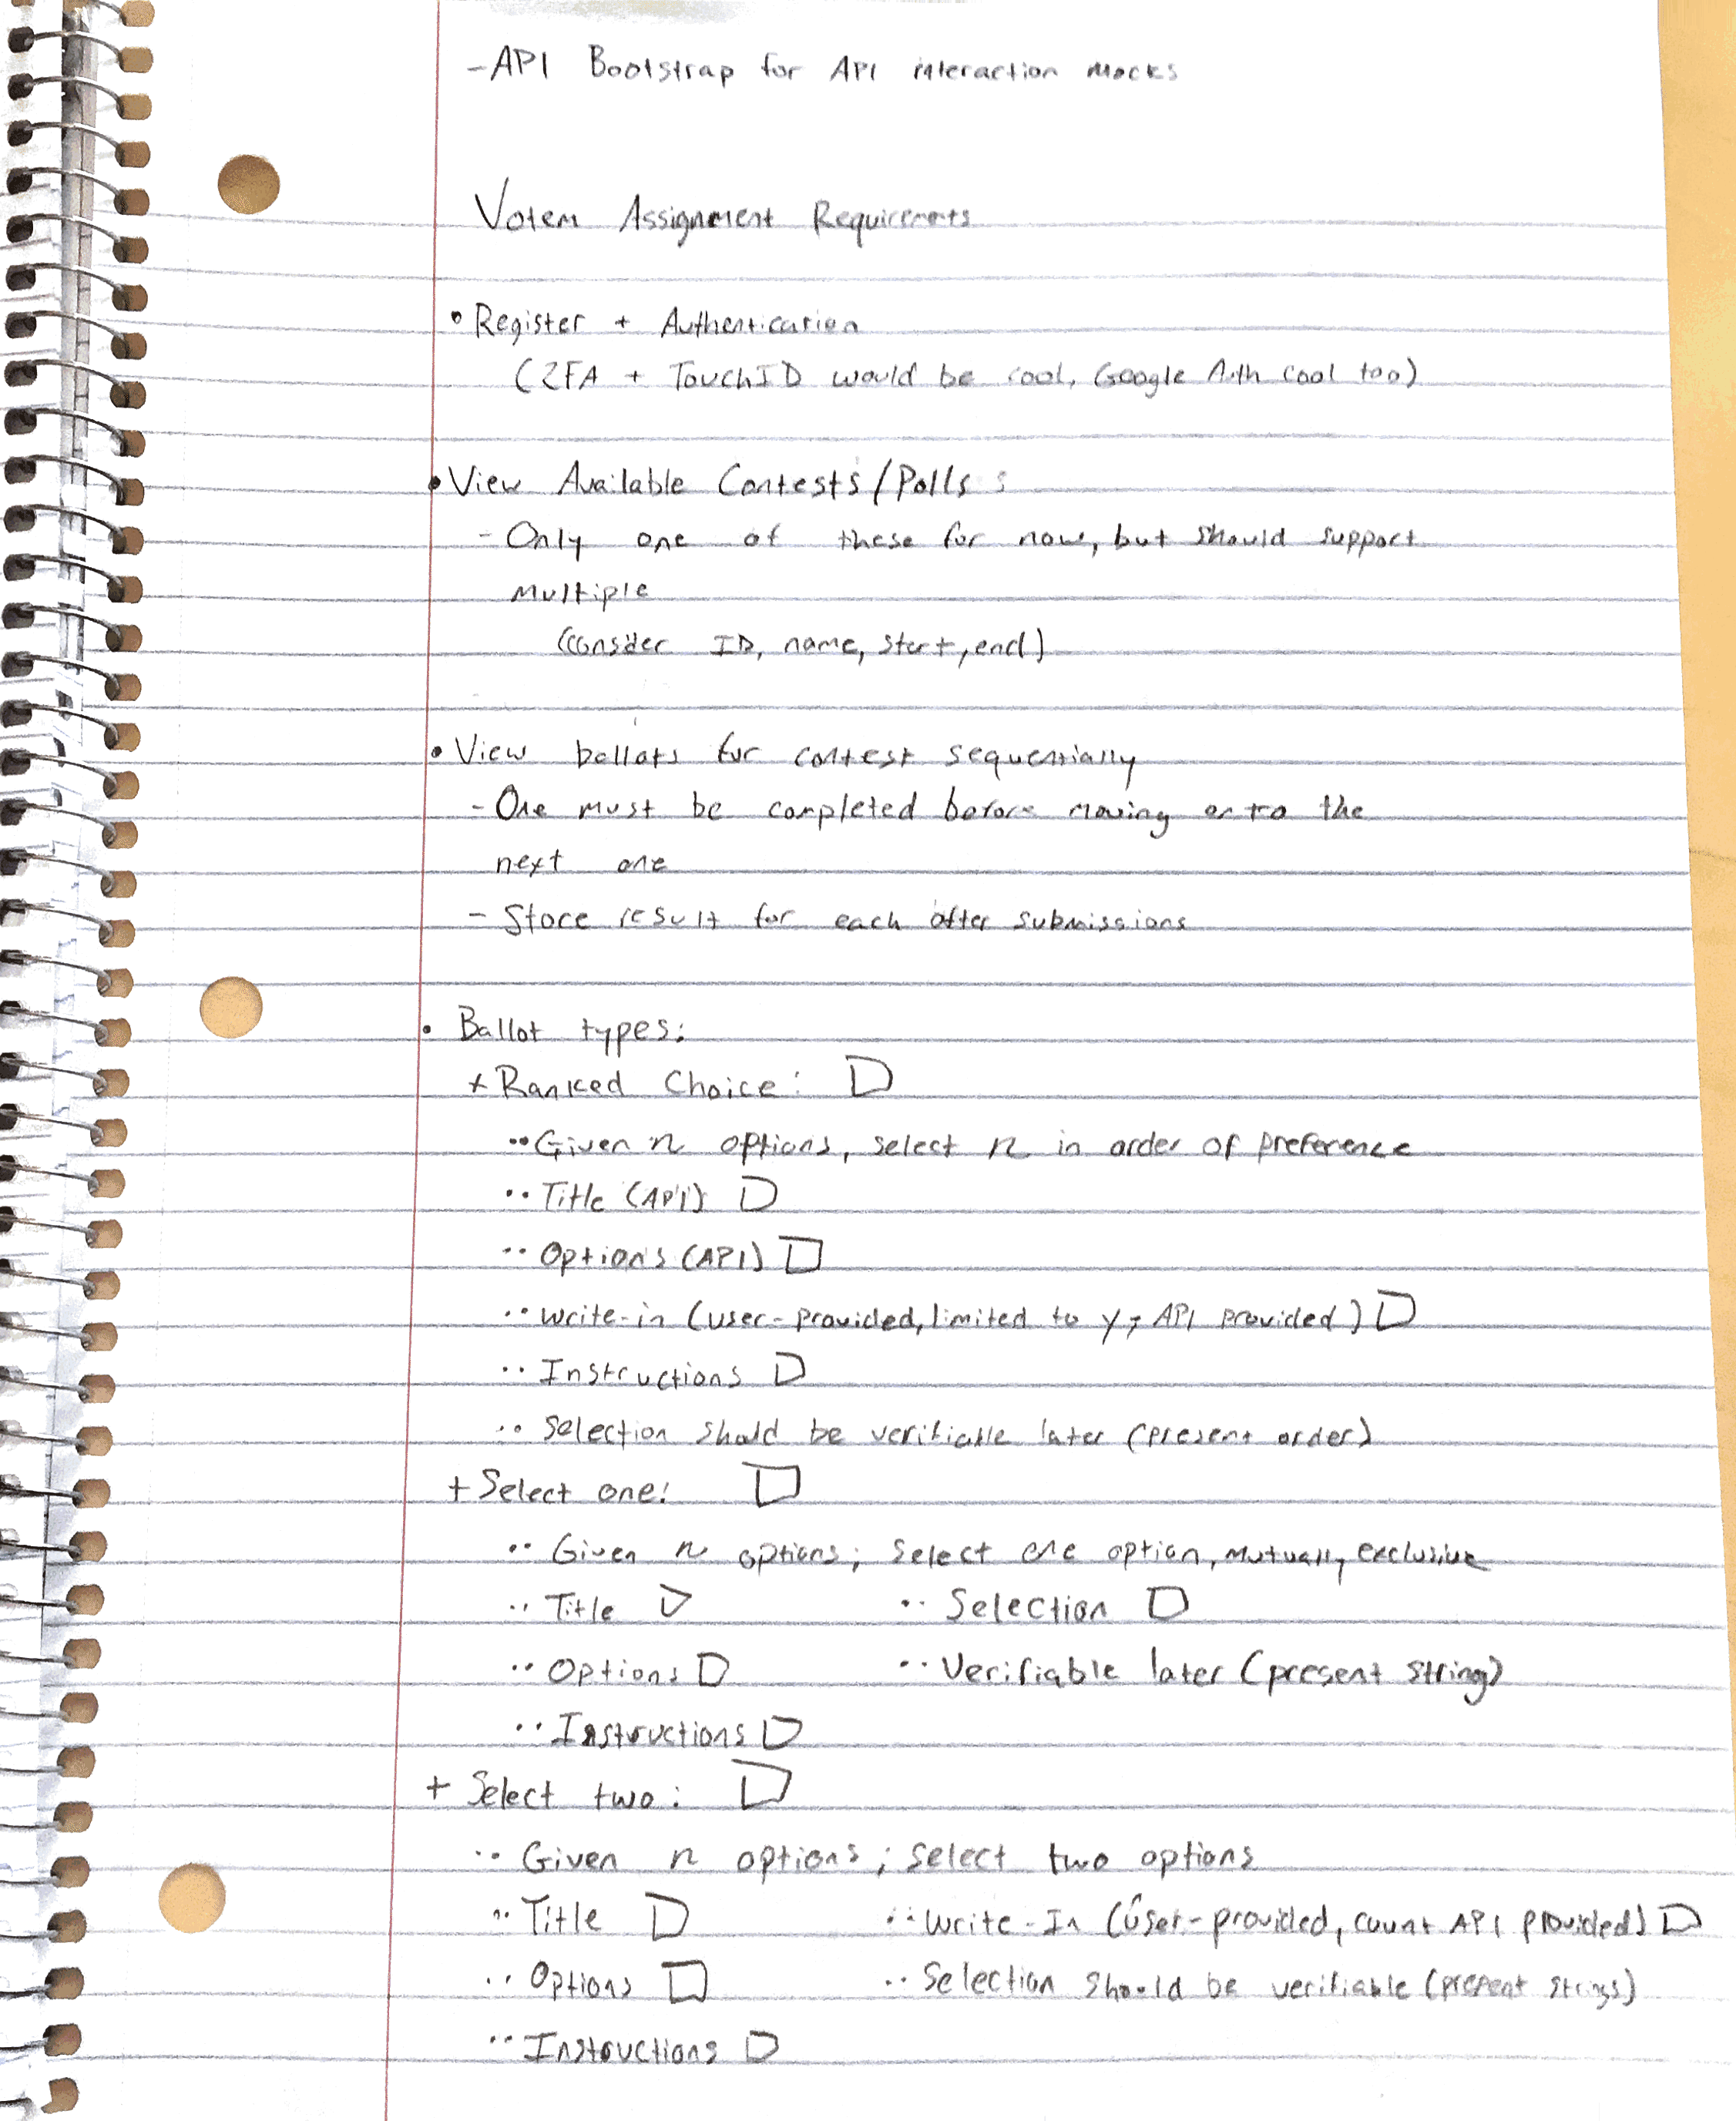 -API Bootstrap for API interaction mocks
Votem Assignment Requirements
• Register + Authentication
(2FA + TouchID would be cool, Google Auth cool too)
• View Available Contests/Polls :
- Only one of these for now, but should support
multiple
(consider ID, name, start, end)
• View ballots for contest sequentially
- One must be completed before moving onto the
next one
- Store result for each after submissions
• Ballot types:
+ Ranked Choice: □
•• Given n options, select n in order of preference
•• Title (API) □
•• Options (API) □
•• Write-in (user-provided, limited to y; API provided) □
•• Instructions □
•• Selection should be verifiable later (present order)
+ Select one: □
•• Given n options; select one option, mutually exclusive
•• Title □ •• Selection □
•• Options □ •• Verifiable later (present string)
•• Instructions □
+ Select two: □
•• Given n options; select two options
•• Title □ •• Write-In (user-provided, count API provided) □
•• Options □ •• Selection should be verifiable (present strings)
•• Instructions □